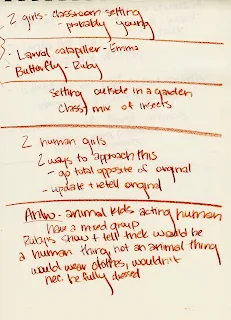 2 girls - classroom setting
- probably young
- Larval catapiller - Emma
Butterfly - Ruby
setting outside in a garden
class, mix of insects
2 human girls
2 ways to approach this
- go total opposite of original
- update & retell original
Anthro - animal kids acting human
have a mixed group
Ruby's show & tell trick would be
a human thing, not an animal thing
would wear clothes, wouldn't
nec. be fully dressed